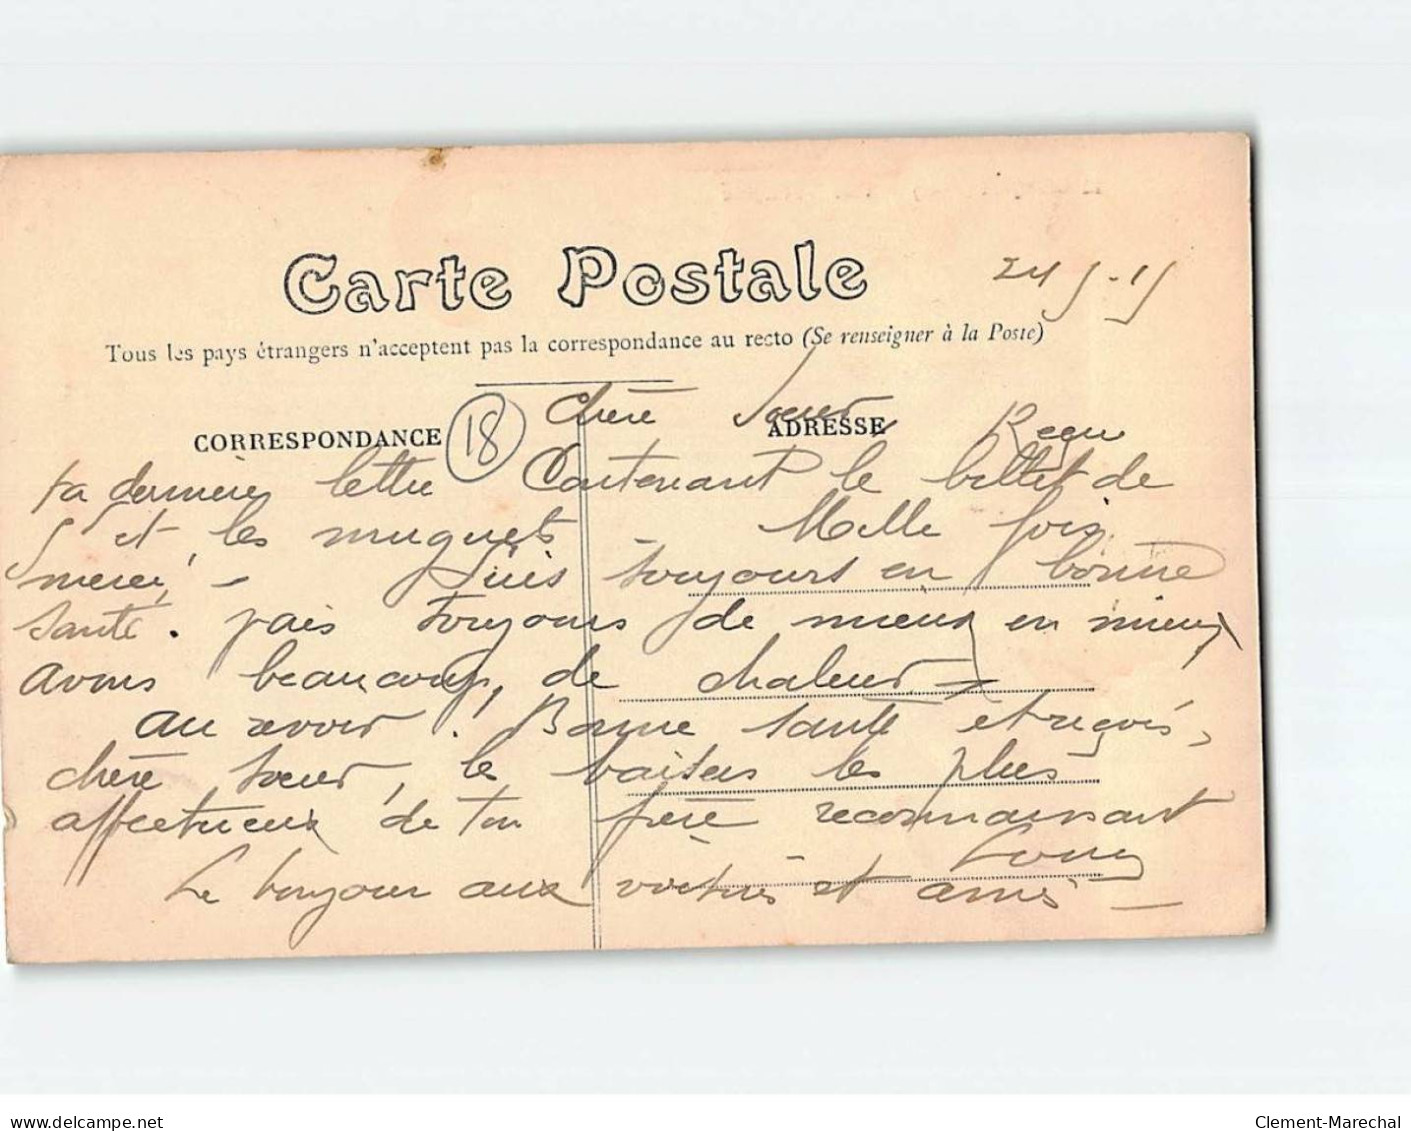 Carte Postale
24 5-15
Tous les pays étrangers n'acceptent pas la correspondance au recto (Se renseigner à la Poste)
CORRESPONDANCE
18
ADRESSE
Chère Soeur Reçu
ta dernière lettre Contenant le billet de
5 et les muguets Mille fois
merci, - Suis toujours en bonne
santé. vais toujours de mieux en mieux
avons beaucoup, de chaleur -
au revoir ! Bonne santé et reçois,
chère soeur, le baisers les plus
affectueux de ton frère reconnaissant
Louis
Le bonjour aux voisins et amis -
delcampe.net
Clement-Marechal